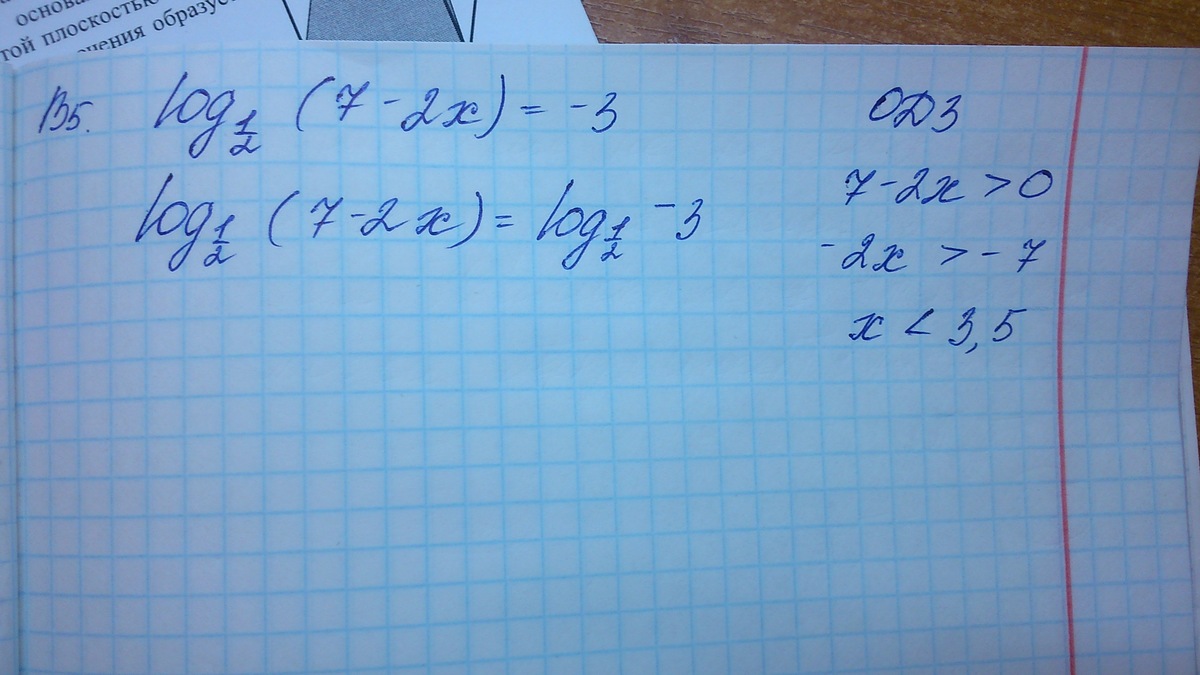 основа
той плоскостью
чения образуе
В5. log_{1/2} (7 - 2x) = -3
log_{1/2} (7 - 2x) = log_{1/2} -3
ОДЗ
7 - 2x > 0
-2x > -7
x < 3,5